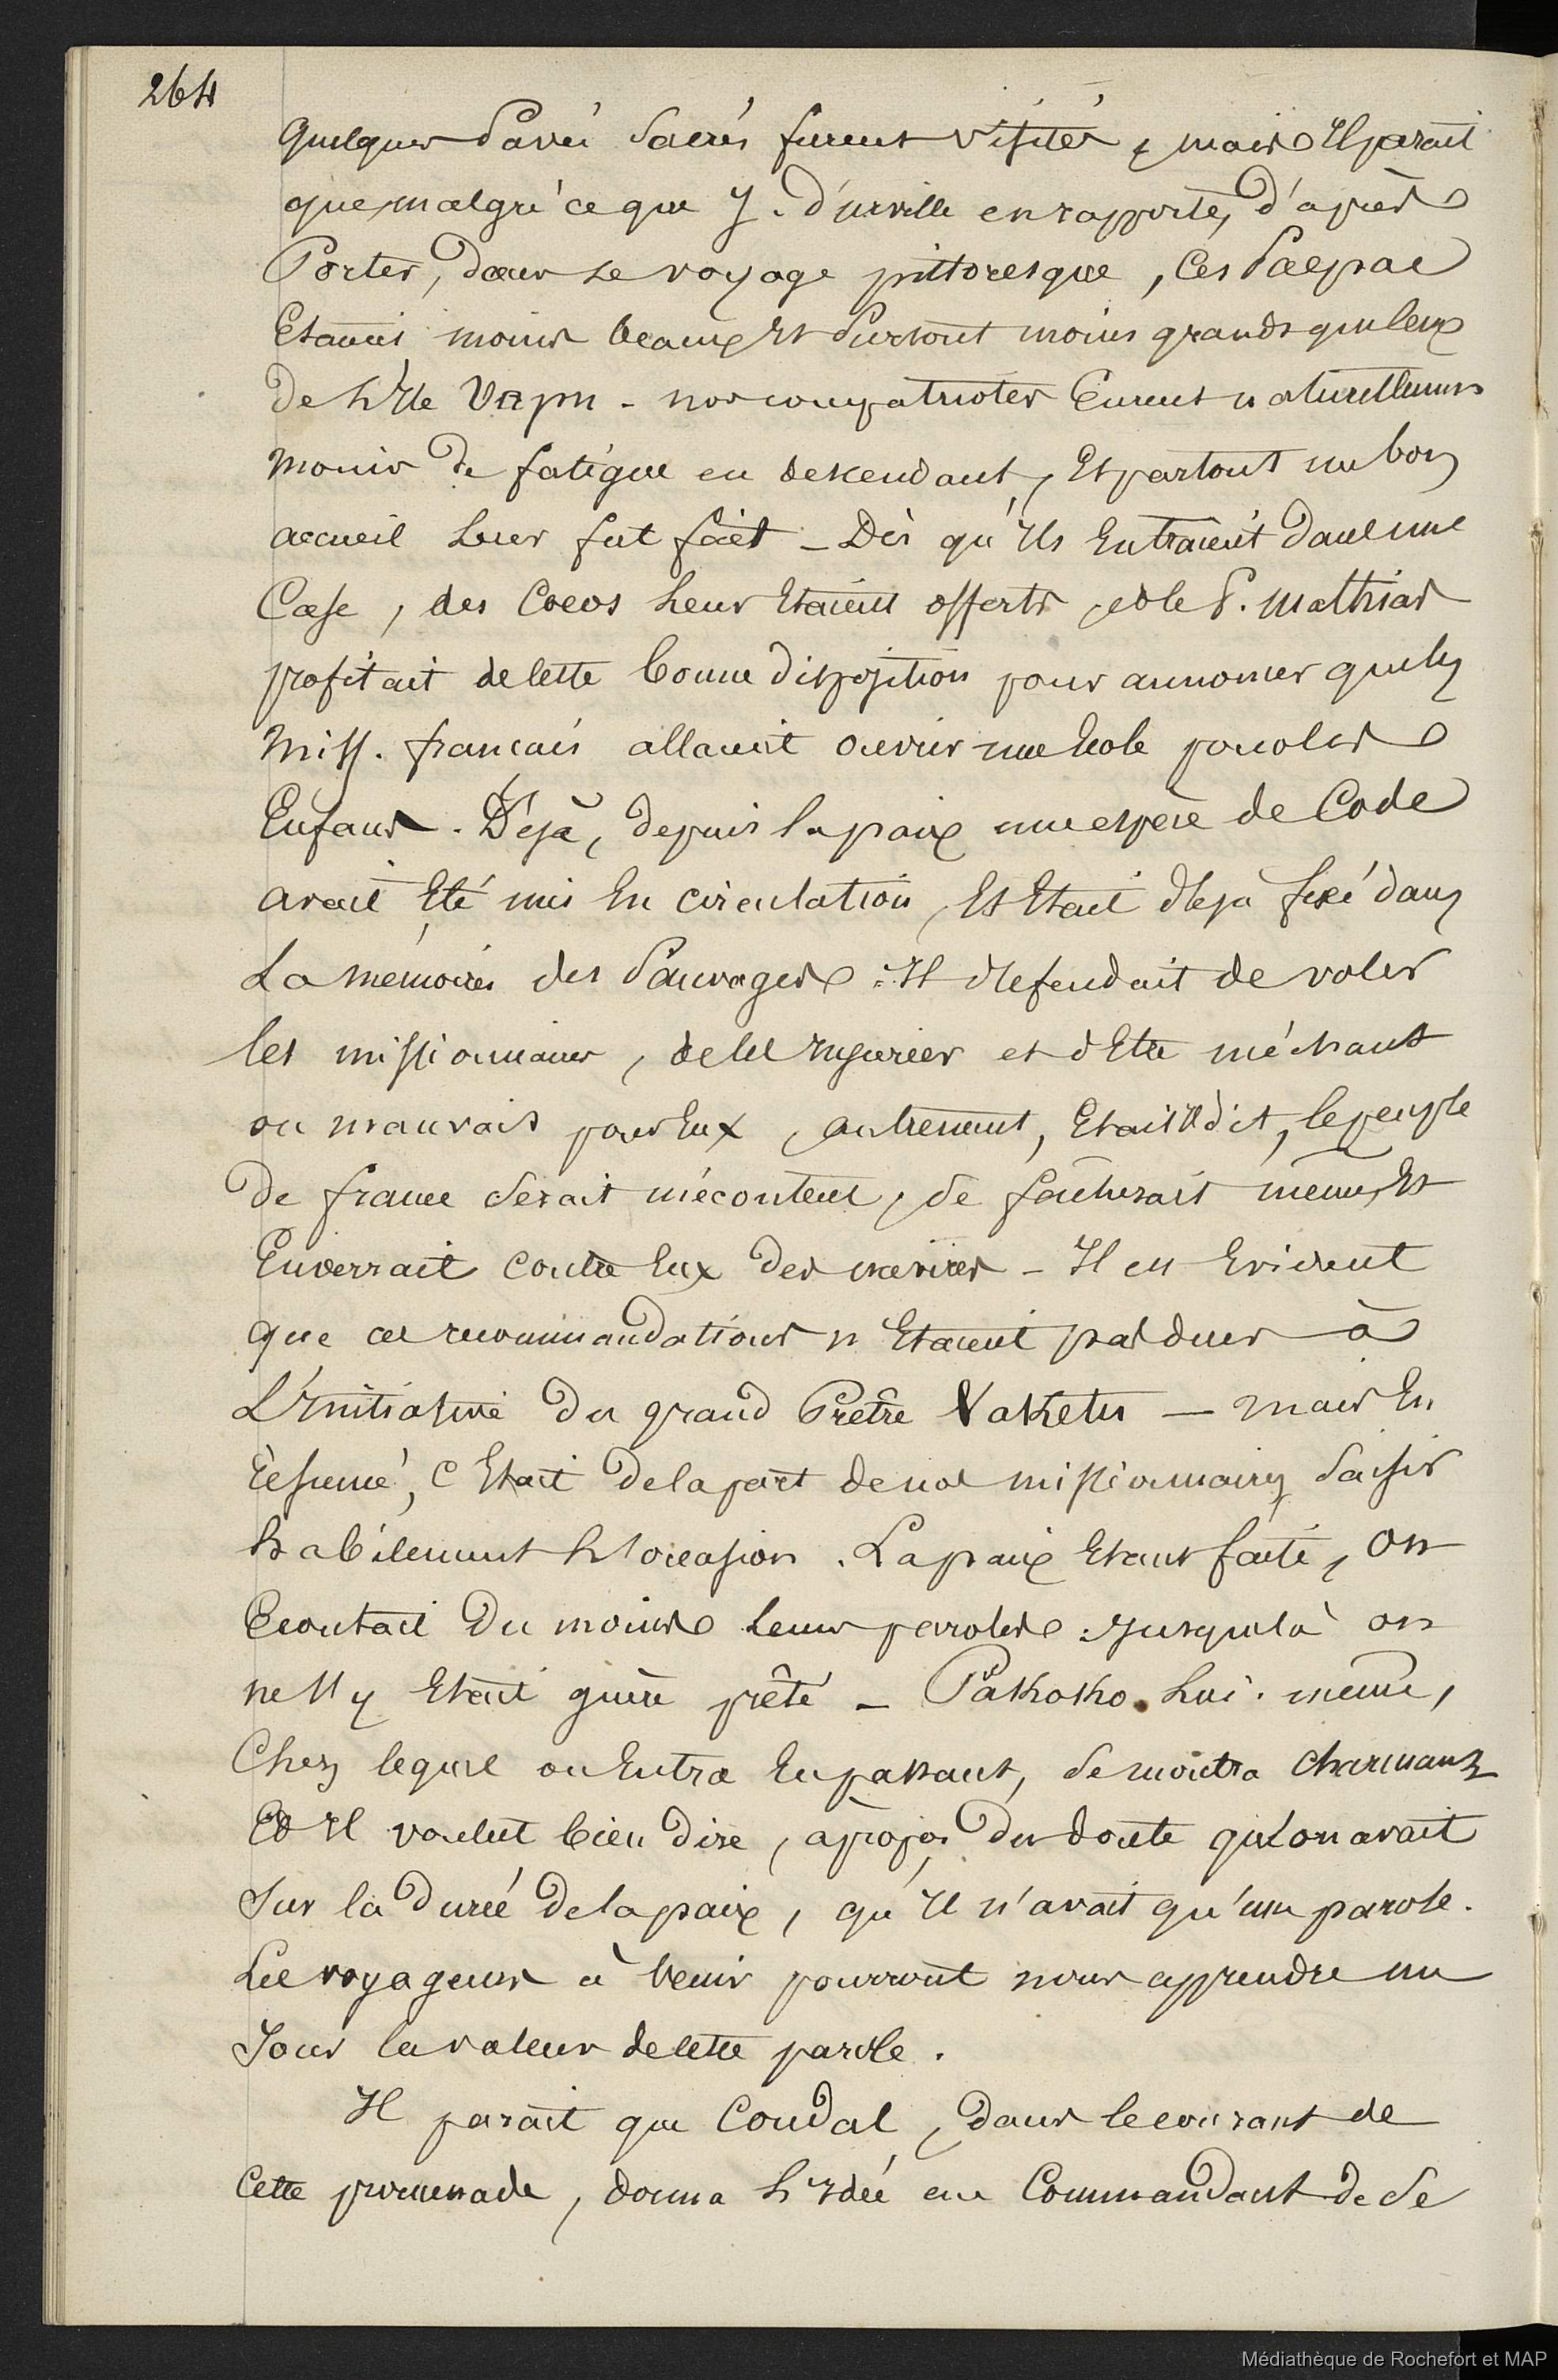 264
Quelques Pavés Sacrés furent visités, mais Il parait
que, malgré ce que J. d'urville en rapporte, d'après
Porter, dans le voyage pittoresque, Ces Paepae
Etaient moins beaux Et Surtout moins grands que ceux
de L'Ile Vapu - nos compatriotes Eurent naturellement
moins de fatigue en descendant, Et partout un bon
accueil leur fut fait - Dès qu'Ils Entraient dans une
Case, des Cocos leur Etaient offerts, et le P. Mathias
profitait de cette bonne disposition pour annoncer que les
Miss. français allaient ouvrir une Ecole pour les
Enfans. Déjà, depuis la paix une espèce de Code
avait Eté mis En circulation, Et Etait déja fixé dans
La mémoire des Sauvages. Il défendait de voler
les missionnaires, de les Injurier et d'Etre méchant
ou mauvais pour Eux, autrement, Etait Il dit, le peuple
de france Serait mécontent, Se facherait même, Et
Enverrait Contre Eux des navires - Il est Evident
que ces recommandations n'Etaient pas dues à
L'Initiative du grand Prêtre Vaketu - mais En
résumé, C'Etait de la part de nos missionnaires Saisir
habilement L'occasion. La paix Etant faite, On
Ecoutait du moins leurs paroles. Jusques là on
ne S'y Etait guère prêté - Pakoko lui-même,
Chez lequel on Entra En passant, Se montra charmant
Et Il voulut bien dire, à propos du doute qu'on avait
Sur la durée de la paix, qu'Il n'avait qu'une parole.
Les voyageurs à venir pourront nous apprendre un
Jour la valeur de cette parole.
Il parait que Coudal, dans le courant de
Cette promenade, donna L'Idée au Commandant de Se
Médiathèque de Rochefort et MAP